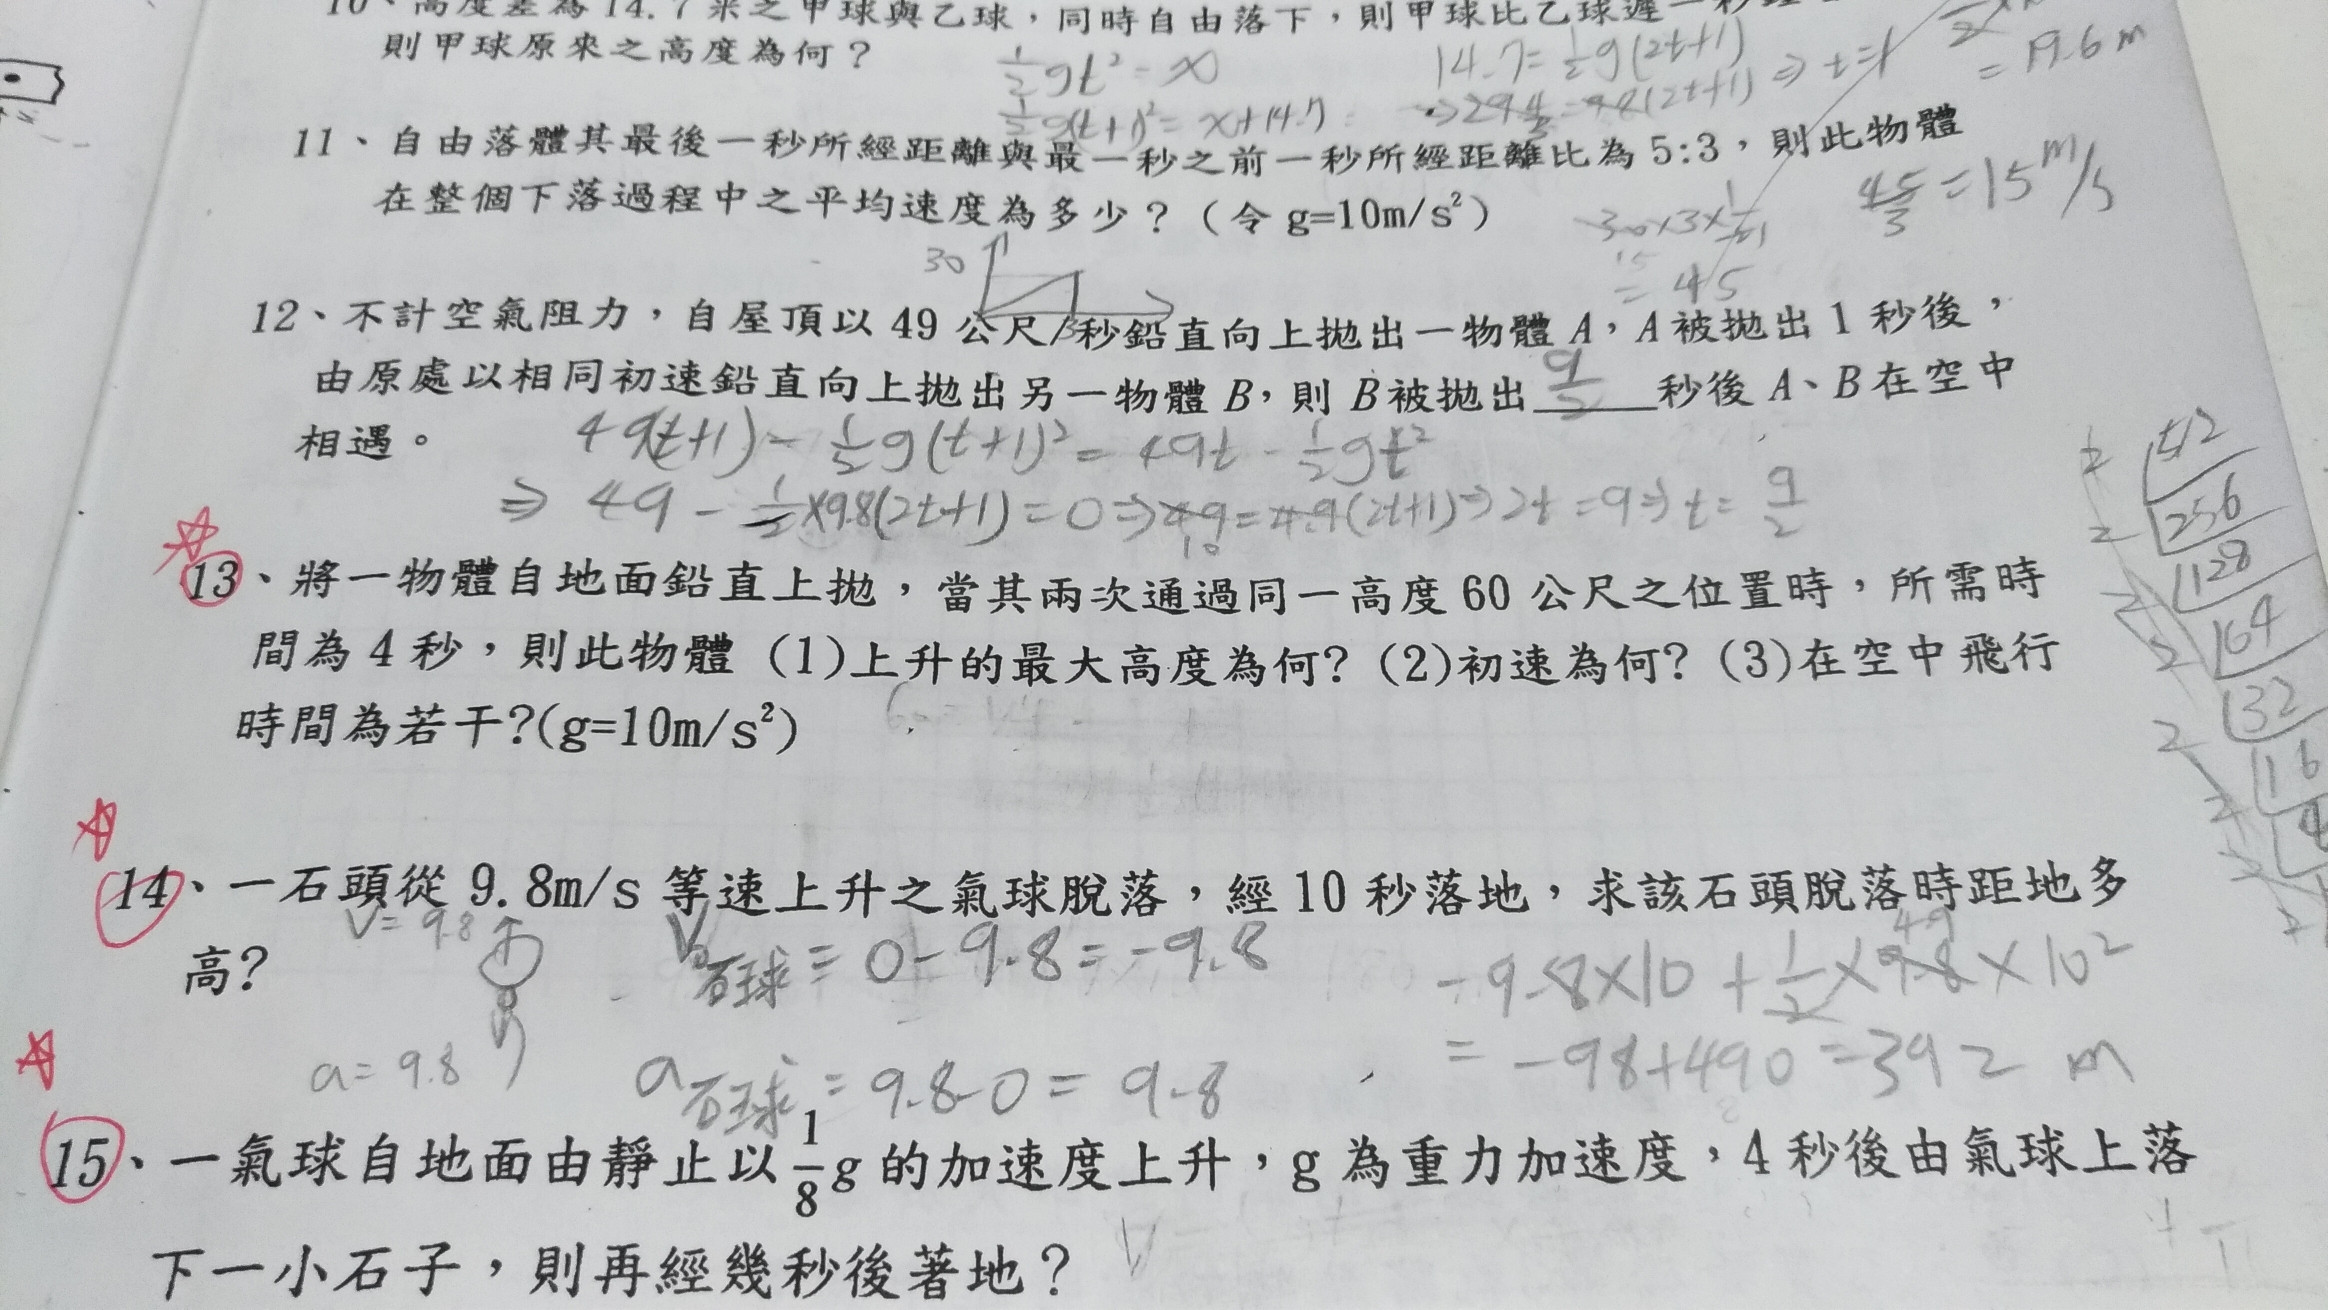 10、高度差為14.7米之甲球與乙球，同時自由落下，則甲球比乙球遲一秒
則甲球原來之高度為何？
½gt² = x
½g(t+1)² = x+14.7
14.7 = ½g(2t+1)
= 9.8(2t+1) ⇒ t=1
= 19.6 m
11、自由落體其最後一秒所經距離與最一秒之前一秒所經距離比為5:3，則此物體
在整個下落過程中之平均速度為多少？（令 g=10m/s²）
30
30×3×½
= 45
45/3 = 15 m/s
12、不計空氣阻力，自屋頂以 49 公尺/秒鉛直向上拋出一物體 A，A 被拋出 1 秒後，
由原處以相同初速鉛直向上拋出另一物體 B，則 B 被拋出 9/2 秒後 A、B 在空中
相遇。
49(t+1) - ½g(t+1)² = 49t - ½gt²
⇒ 49 - ½×9.8(2t+1) = 0 ⇒ 49 = 4.9(2t+1) ⇒ 2t = 9 ⇒ t = 9/2
10
13、將一物體自地面鉛直上拋，當其兩次通過同一高度 60 公尺之位置時，所需時
間為 4 秒，則此物體 (1)上升的最大高度為何? (2)初速為何? (3)在空中飛行
時間為若干?(g=10m/s²)
14、一石頭從 9.8m/s 等速上升之氣球脫落，經 10 秒落地，求該石頭脫落時距地多
高?
V= 9.8
V₀石球 = 0-9.8 = -9.8
-9.8×10 + ½×9.8×10²
4.9
= -98+490 = 392 m
a= 9.8
a石球 = 9.8-0 = 9.8
15、一氣球自地面由靜止以 1/8 g 的加速度上升，g 為重力加速度，4 秒後由氣球上落
下一小石子，則再經幾秒後著地？
2 512
2 256
2 128
2 64
2 32
2 16